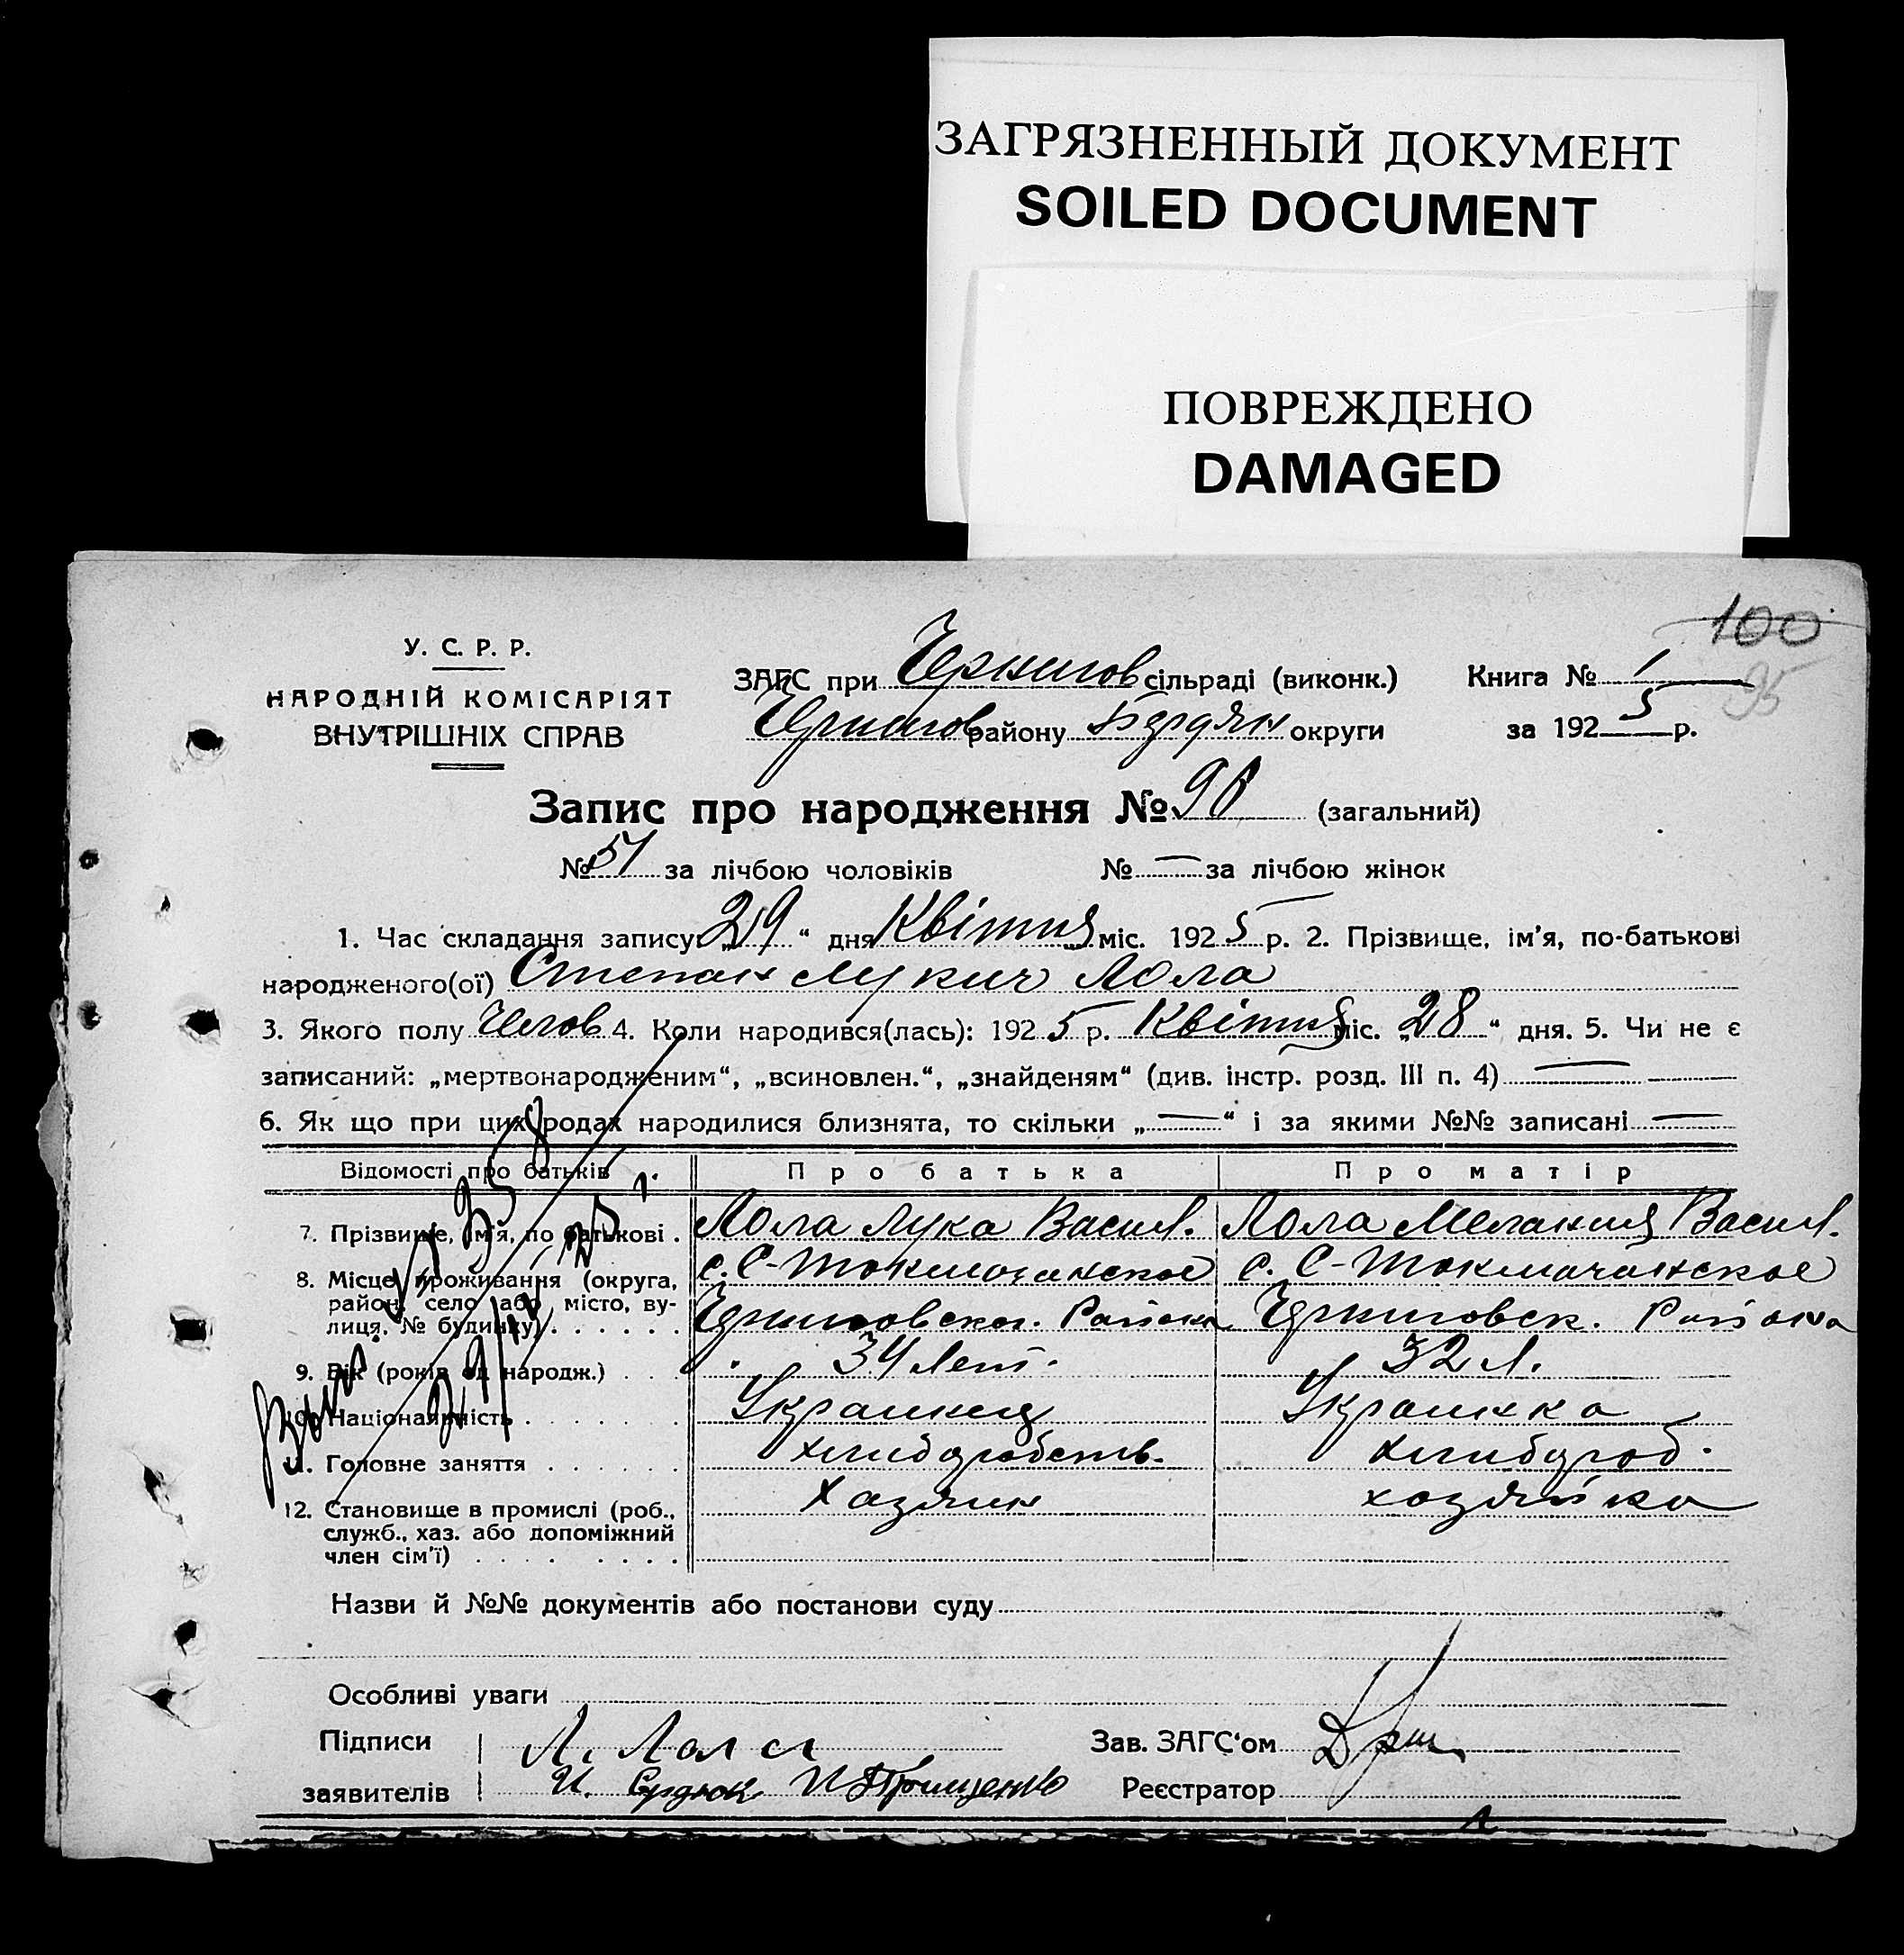 ЗАГРЯЗНЕННЫЙ ДОКУМЕНТ
SOILED DOCUMENT
ПОВРЕЖДЕНО
DAMAGED
100
95
У. С. Р. Р.
НАРОДНІЙ КОМІСАРІЯТ
ВНУТРІШНІХ СПРАВ
ЗАГС при Чернигов сільраді (виконк.) Книга № 1
Чернигов району Бердян округи за 1925 р.
Запис про народження № 98 (загальний)
№ 51 за лічбою чоловіків № — за лічбою жінок
1. Час складання запису: „29“ дня Квітня міс. 1925 р. 2. Прізвище, ім'я, по-батькові
народженого(ої) Степан Лукич Лола
3. Якого полу Челов 4. Коли народився(лась): 1925 р. Квітня міс. „28“ дня. 5. Чи не є
записаний: „мертвонародженим“, „всиновлен.“, „знайденям“ (див. інстр. розд. III п. 4) —
6. Як що при цих родах народилися близнята, то скільки „—“ і за якими №№ записані —
Відомості про батьків Про батька Про матір
7. Прізвище, ім'я, по батькові . Лола Лука Васил. Лола Мелания Васил.
8. Місце проживання (округа, с. С-Токмачанское с. С-Токмачанское
район, село або місто, ву-
лиця, № будинку) . . . . . . Черниговског. Района Черниговск. Района
9. Вік (років од народж.) . . . 34 лет. 32 л.
10. Національність . . . . . . Украинец Украинка
11. Головне заняття . . . . . . хлибодробств. хлибороб.
12. Становище в промислі (роб., Хазяин хозяйка
служб., хаз. або допоміжний
член сім'ї) . . . . . . . .
Назви й №№ документів або постанови суду
Особливі уваги
Підписи Л. Лола Зав. ЗАГС'ом
заявителів И. Сердюк И Грищенко Реєстратор